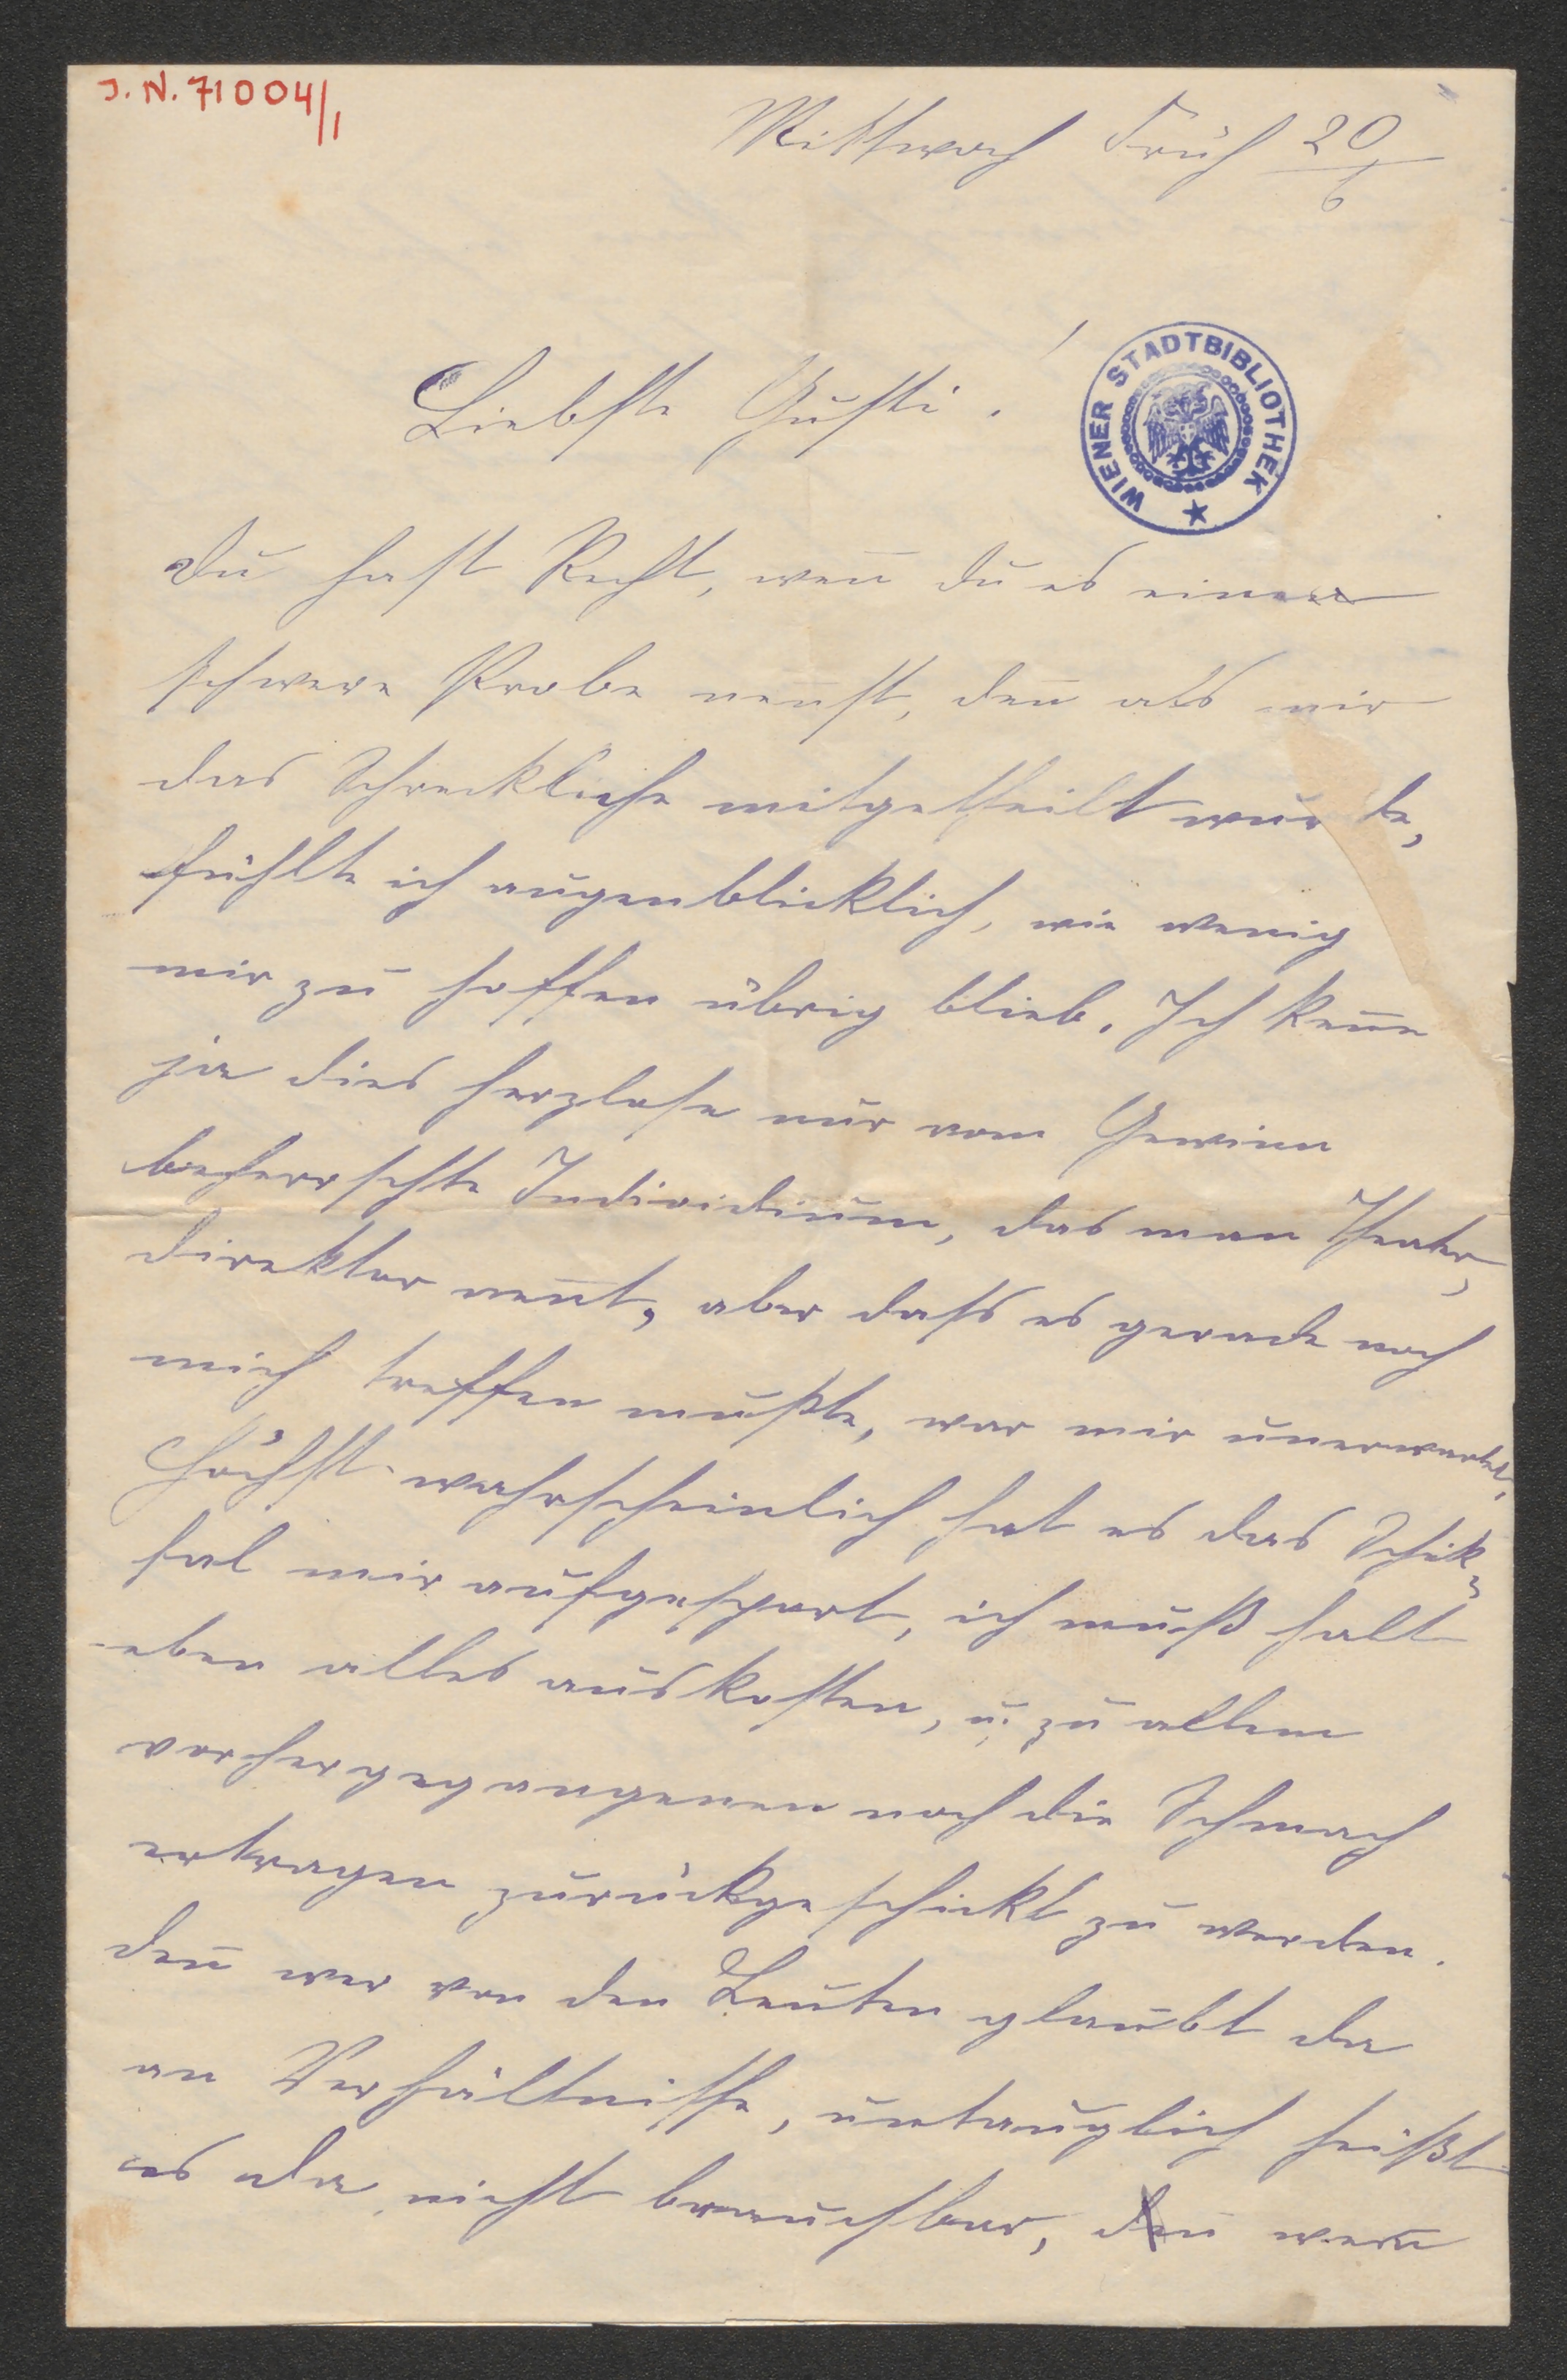 J. N. 71004/1
Mittwoch Früh 20/6
WIENER STADTBIBLIOTHEK
Liebste Gusti!
Du hast Recht, weñ du es eine
schwere Probe neñst, deñ als mir
das Schreckliche mitgetheilt wurde,
fühlte ich augenblicklich, wie wenig
mir zu hoffen übrig blieb. Ich keñe
ja dies herzlose nur vom Gewinn
beherrschte Individium, das man Theater-
direktor neñt, aber dass es gerade noch
mich treffen mußte, war mir unerwartet,
höchst wahrscheinlich hat es das Schik-
sal mir aufgespart, ich muß halt
eben alles auskosten, u. zu allem
vorhergegangenen noch die Schmach
ertragen zurückgeschickt zu werden.
deñ wer von den Leuten glaubt da
an Verhältnisse, untauglich heißt
es da, nicht brauchbar, deñ wenn